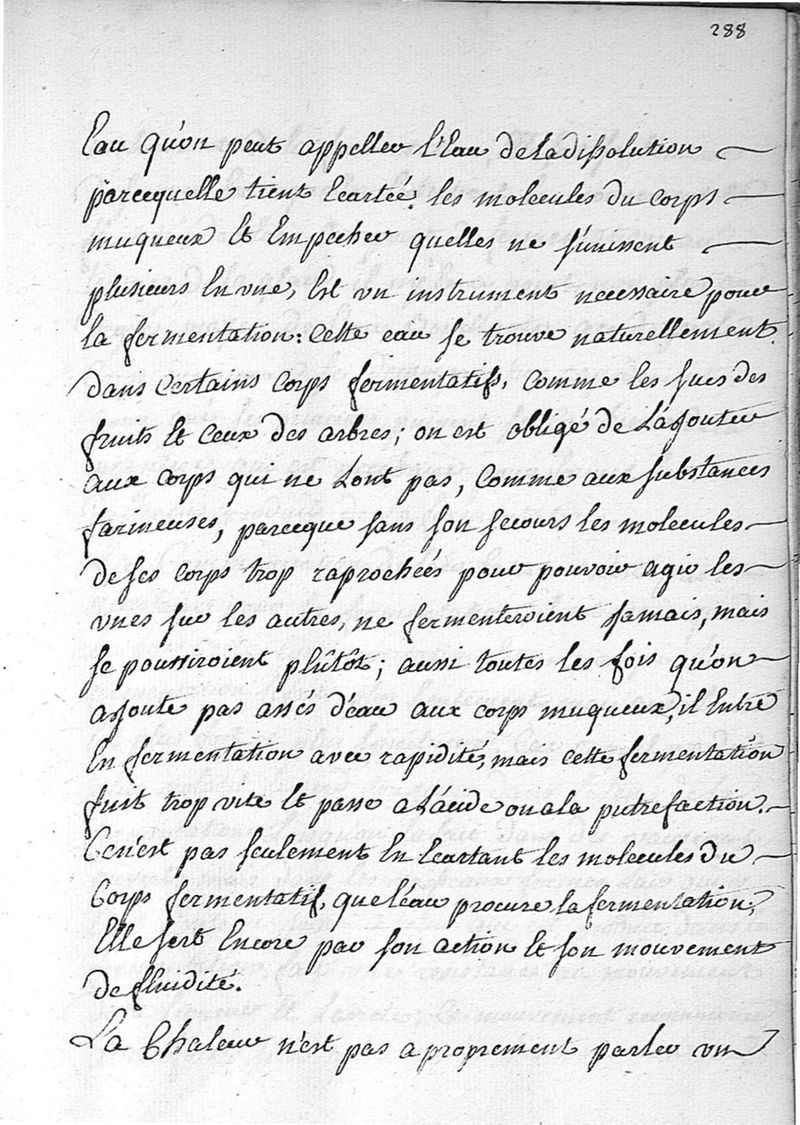 288
Eau qu'on peut appeller l'Eau de la dissolution
parcequelle tient Ecartée les molecules du corps
muqueux Et Empecher quelles ne s'unissent
plusieurs En une, Est un instrument necessaire pour
la fermentation: cette eau se trouve naturellement
dans certains corps fermentatifs, comme les sucs des
fruits Et ceux des arbres; on est obligé de L'ajouter
aux corps qui ne Lont pas, Comme aux substances
farineuses, parceque sans son secours les molecules
de ses corps trop raprochées pour pouvoir agir les
unes sur les autres, ne fermenteroient jamais, mais
se poussiroient plûtôt; aussi toutes les fois qu'on
ajoute pas assés d'eau aux corps muqueux, il Entre
En fermentation avec rapidité, mais cette fermentation
fuit trop vite Et passe a L'acide ou a la putrefaction.
Cen'est pas seulement En Ecartant les molecules du
Corps fermentatif, que l'eau procure la fermentation;
Elle sert Encore par son action Et son mouvement
de fluidité.
La Chaleur n'est pas a proprement parler un